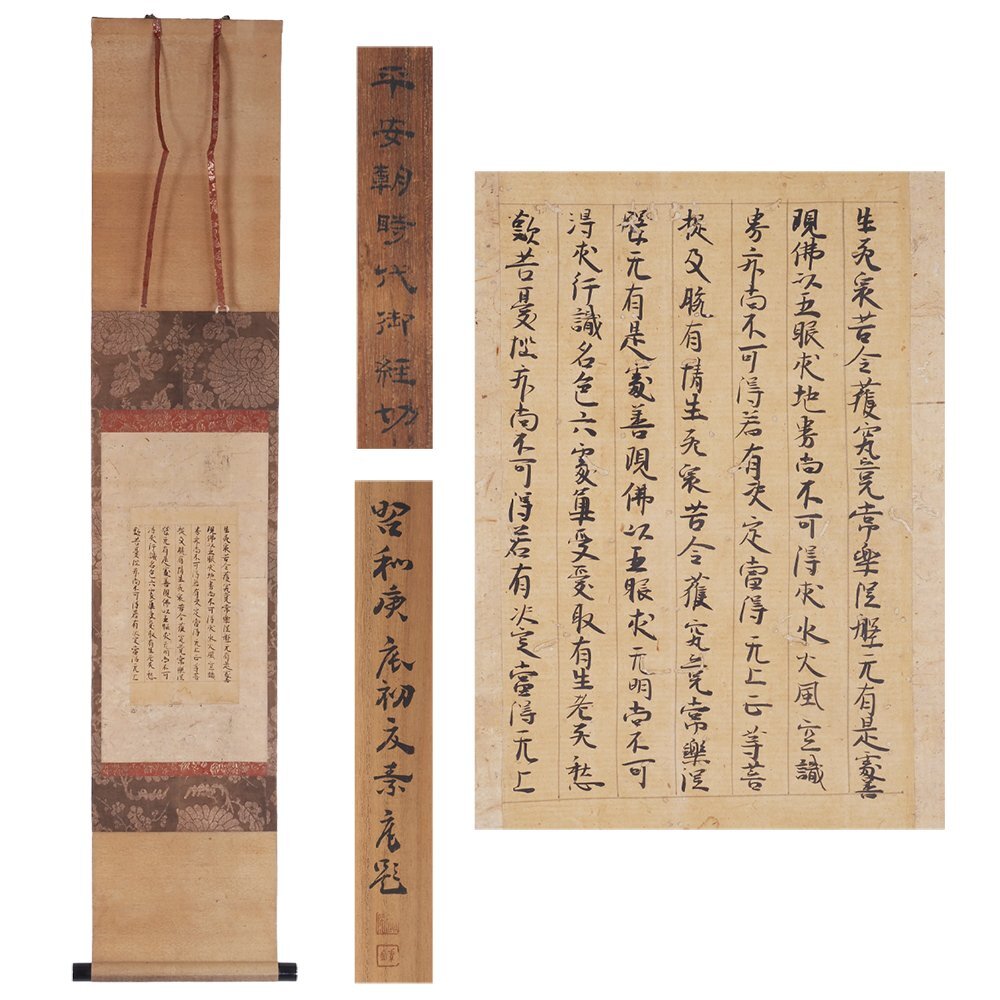 平安朝時代御経切
昭和庚辰初夏素庵題
生死衆苦令獲究竟常樂涅槃无有是處善
現佛以五眼求地界尚不可得求水火風空識
界亦尚不可得若有决定當得无上正等菩
提及脱有情生死衆苦令獲究竟常樂涅
槃无有是處善現佛以五眼求无明尚不可
得求行識名色六處觸受愛取有生老死愁
歎苦憂惱亦尚不可得若有决定當得无上